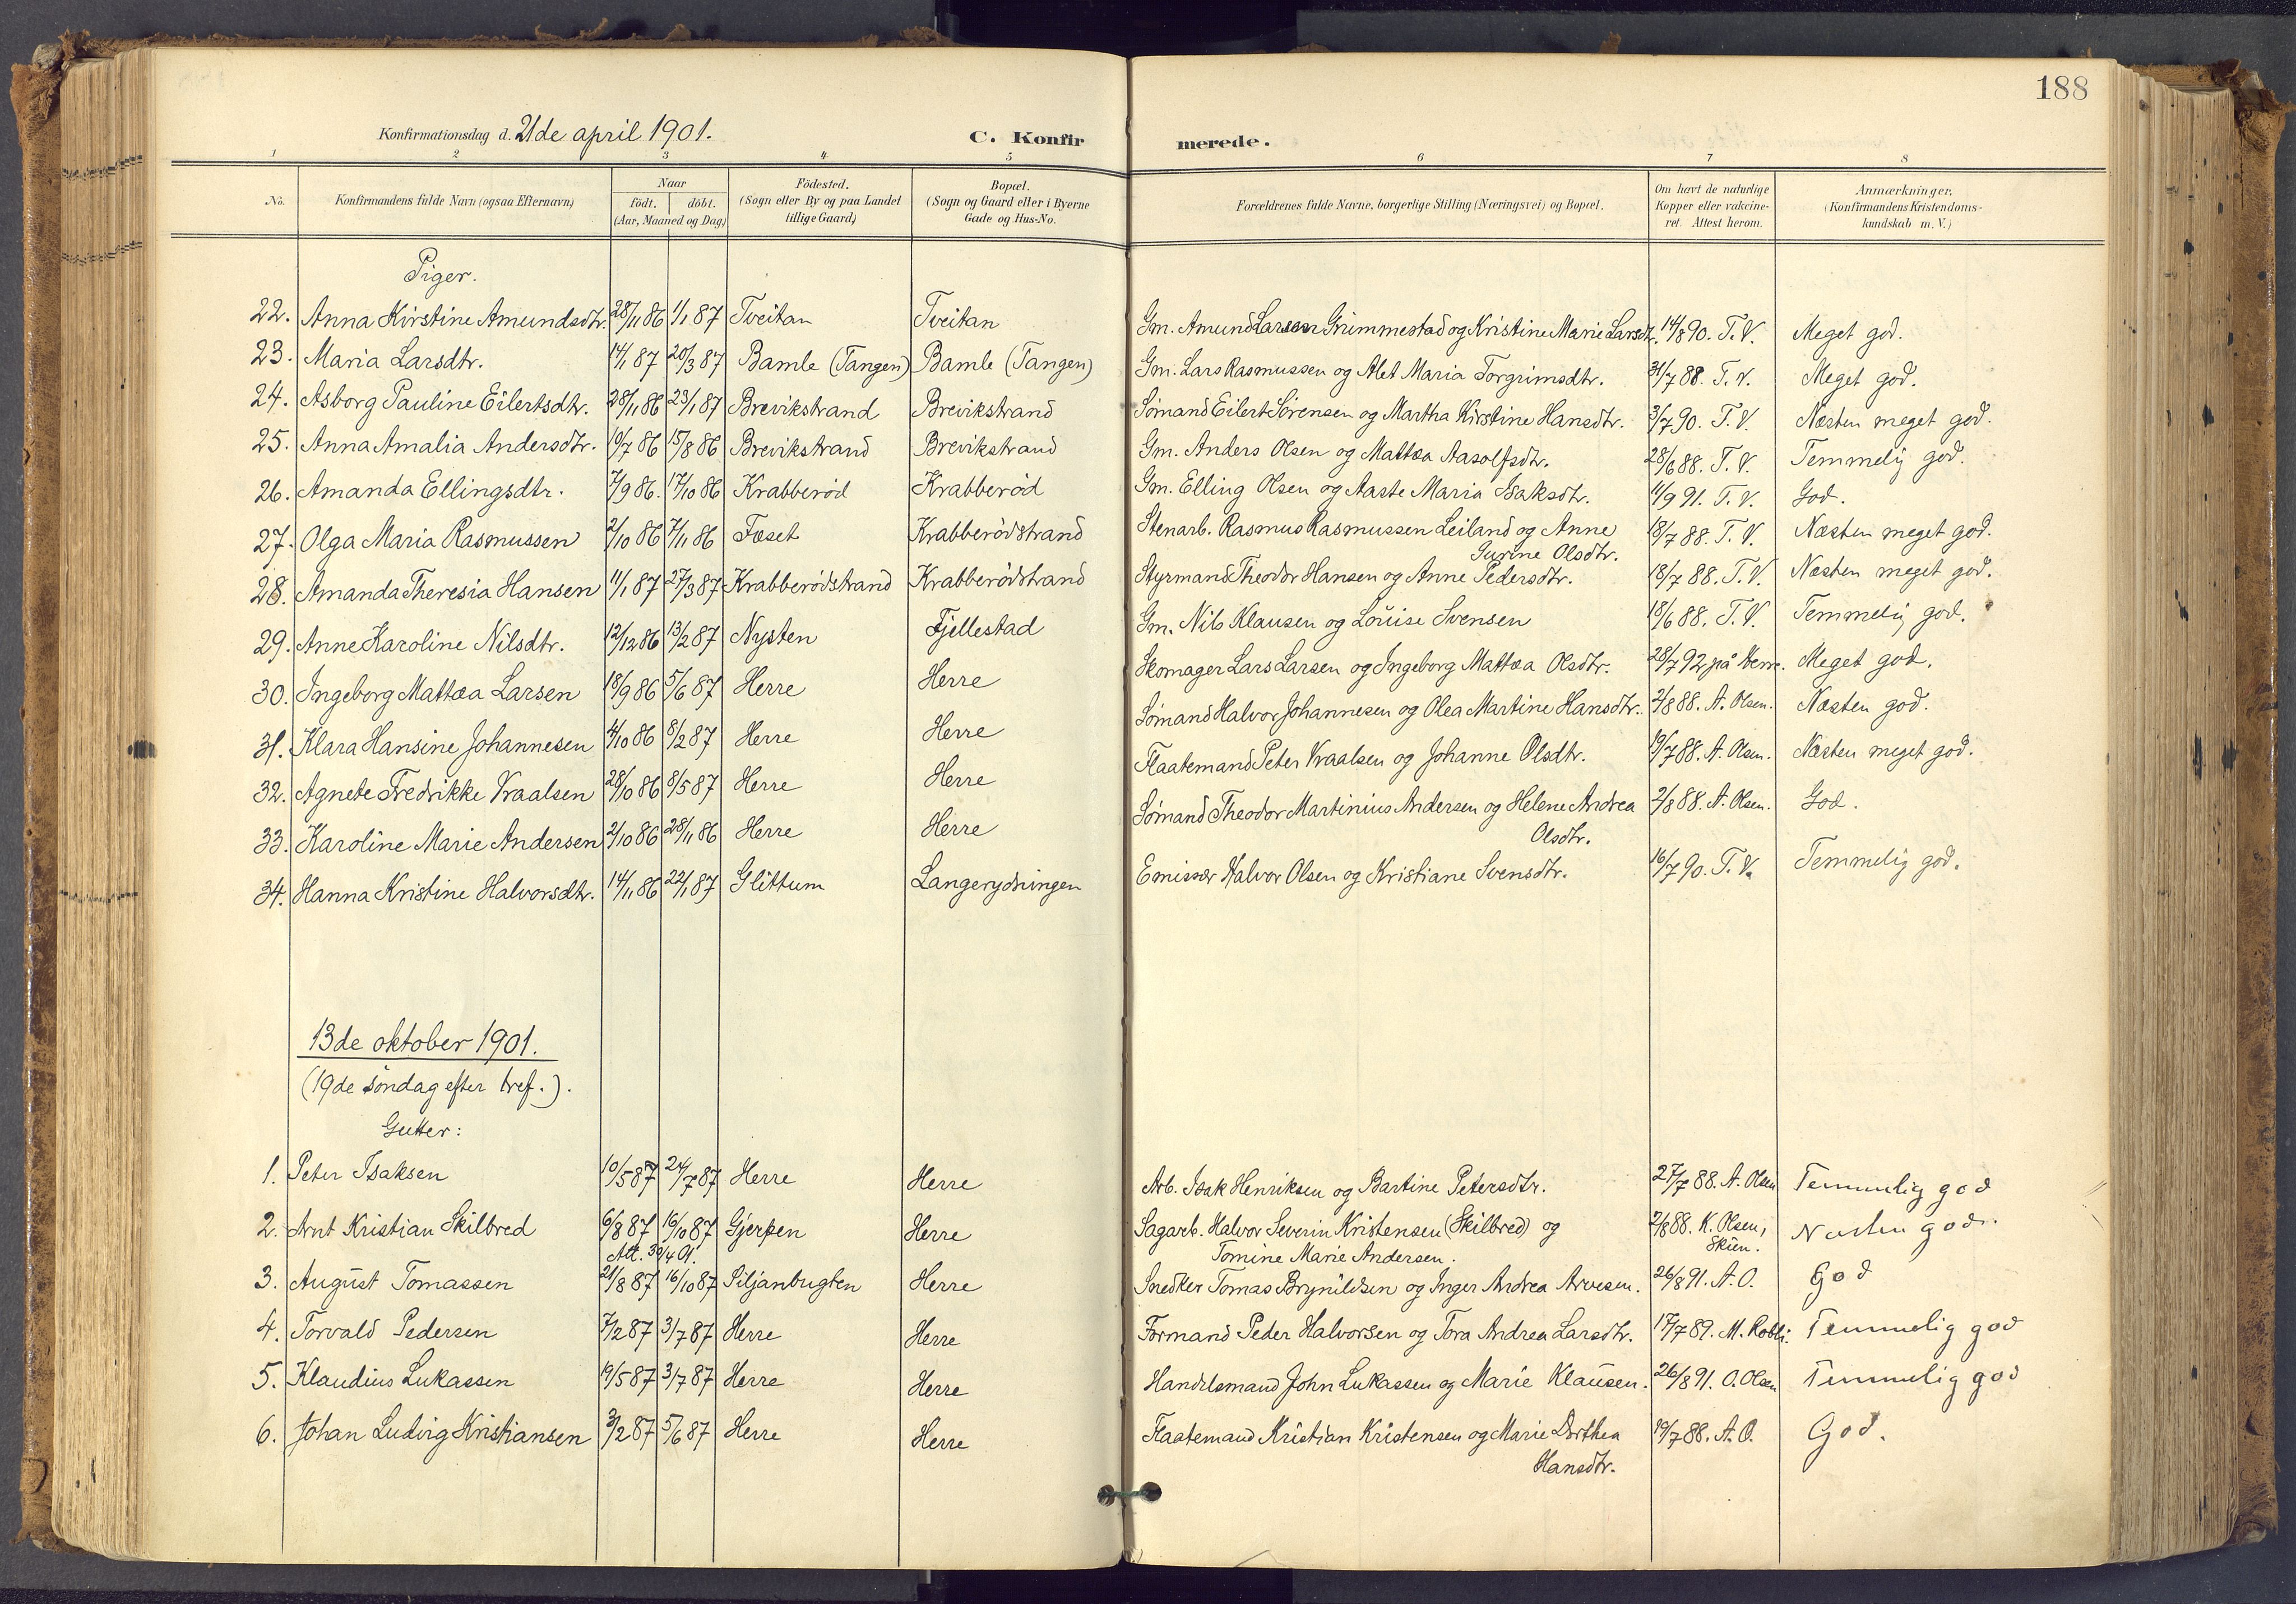 188
Konfirmationsdag d. 21de april 1901. C. Konfirmerede.
1 2 3 4 5 6 7 8
No. Konfirmandens fulde Navn (ogsaa Efternavn) Naar født. døbt. (Aar, Maaned og Dag) Födested. (Sogn eller By og paa Landet tillige Gaard) Bopæl. (Sogn og Gaard eller i Byerne Gade og Hus-No. Forældrenes fulde Navne, borgerlige Stilling (Næringsvei) og Bopæl. Om havt de naturlige Kopper eller vakcineret. Attest herom. Anmærkninger. (Konfirmandens Kristendomskundskab m. V.)
Piger.
22. Anna Kirstine Amundsdtr. 28/11 86 1/1 87 Tveitan Tveitan Gm. Amund Larsen Grimmestad og Kristine Marie Larsdtr. 14/8 90. T. V. Meget god.
23. Maria Larsdtr. 14/1 87 20/3 87 Bamle (Tangen) Bamle (Tangen) Gm. Lars Rasmussen og Alet Maria Torgrimsdtr. 31/7 88. T. V. Meget god.
24. Asborg Pauline Eilertsdtr. 28/11 86 23/1 87 Brevikstrand Brevikstrand Sömand Eilert Sörensen og Martha Kirstine Hansdtr. 3/7 90. T. V. Næsten meget god.
25. Anna Amalia Andersdtr. 10/7 86 15/8 86 Brevikstrand Brevikstrand Gm. Anders Olsen og Mattea Aasolfsdtr. 28/6 88. T. V. Temmelig god.
26. Amanda Ellingsdtr. 7/9 86. 17/10 86 Krabberöd Krabberöd Gm. Elling Olsen og Aaste Maria Isaksdtr. 11/9 91. T. V. God.
27. Olga Maria Rasmussen 2/10 86 7/11 86 Foset Krabberödstrand Stenarb. Rasmus Rasmussen Leiland og Anne 18/7 88. T. V. Næsten meget god.
Gurine Olsdtr.
28. Amanda Theresia Hansen 11/1 87 27/3 87 Krabberödstrand Krabberödstrand Styrmand Theodor Hansen og Anne Pedersdtr. 18/7 88. T. V. Næsten meget god.
29. Anne Karoline Nilsdtr. 12/12 86 13/2 87 Nysten Fjellestad Gm. Nils Klausen og Louise Svensen 18/6 88. T. V. Temmelig god.
30. Ingeborg Mattea Larsen 18/9 86 5/6 87 Herre Herre Skomager Lars Larsen og Ingeborg Mattea Olsdtr. 28/7 92 på Herre. Meget god.
31. Klara Hansine Johannesen 4/10 86 8/2 87 Herre Herre Sömand Halvor Johannesen og Olea Martine Hansdtr. 2/8 88. A. Olsen. Næsten god.
32. Agnete Fredrikke Vraalsen 28/10 86 8/5 87 Herre Herre Flaatemand Peter Vraalsen og Johanne Olsdtr. 19/7 88. A. Olsen. Næsten meget god.
33. Karoline Marie Andersen 2/10 86 28/11 86 Herre Herre Sömand Theodor Martinius Andersen og Helene Andrea 2/8 88. A. Olsen. God.
Olsdtr.
34. Hanna Kristine Halvorsdtr. 14/11 86 22/1 87 Glittum Langerydningen Emissær Halvor Olsen og Kristiane Svensdtr. 16/7 90. T. V. Temmelig god.
13de oktober 1901.
(19de söndag efter tref.).
Gutter:
1. Peter Isaksen 10/5 87 24/7 87 Herre Herre Arb. Isak Henriksen og Bartine Petersdtr. 27/7 88. A. Olsen Temmelig god
2. Arnt Kristian Skilbred 6/8 87 16/10 87 Gjerpen Herre Sagarb. Halvor Severin Kristensen (Skilbred) og 2/8 88. K. Olsen, Næsten god.
Att. 30/4 01. Tomine Marie Andersen. Skien.
3. August Tomassen 21/8 87 16/10 87 Siljanbugten Herre Snedker Tomas Brynildsen og Inger Andrea Arvesen. 26/8 91. A. O. God
4. Torvald Pedersen 7/2 87 3/7 87 Herre Herre Formand Peder Halvorsen og Tora Andrea Larsdtr. 17/7 89. M. Temmelig god
5. Klaudius Lukassen 19/5 87 3/7 87 Herre Herre Handelsmand John Lukassen og Marie Klausen. 26/8 91. O. Olsen Temmelig god
6. Johan Ludvig Kristiansen 3/2 87 5/6 87 Herre Herre Flaatemand Kristian Kristensen og Marie Dorthea 19/7 88. A. O. God.
Hansdtr.